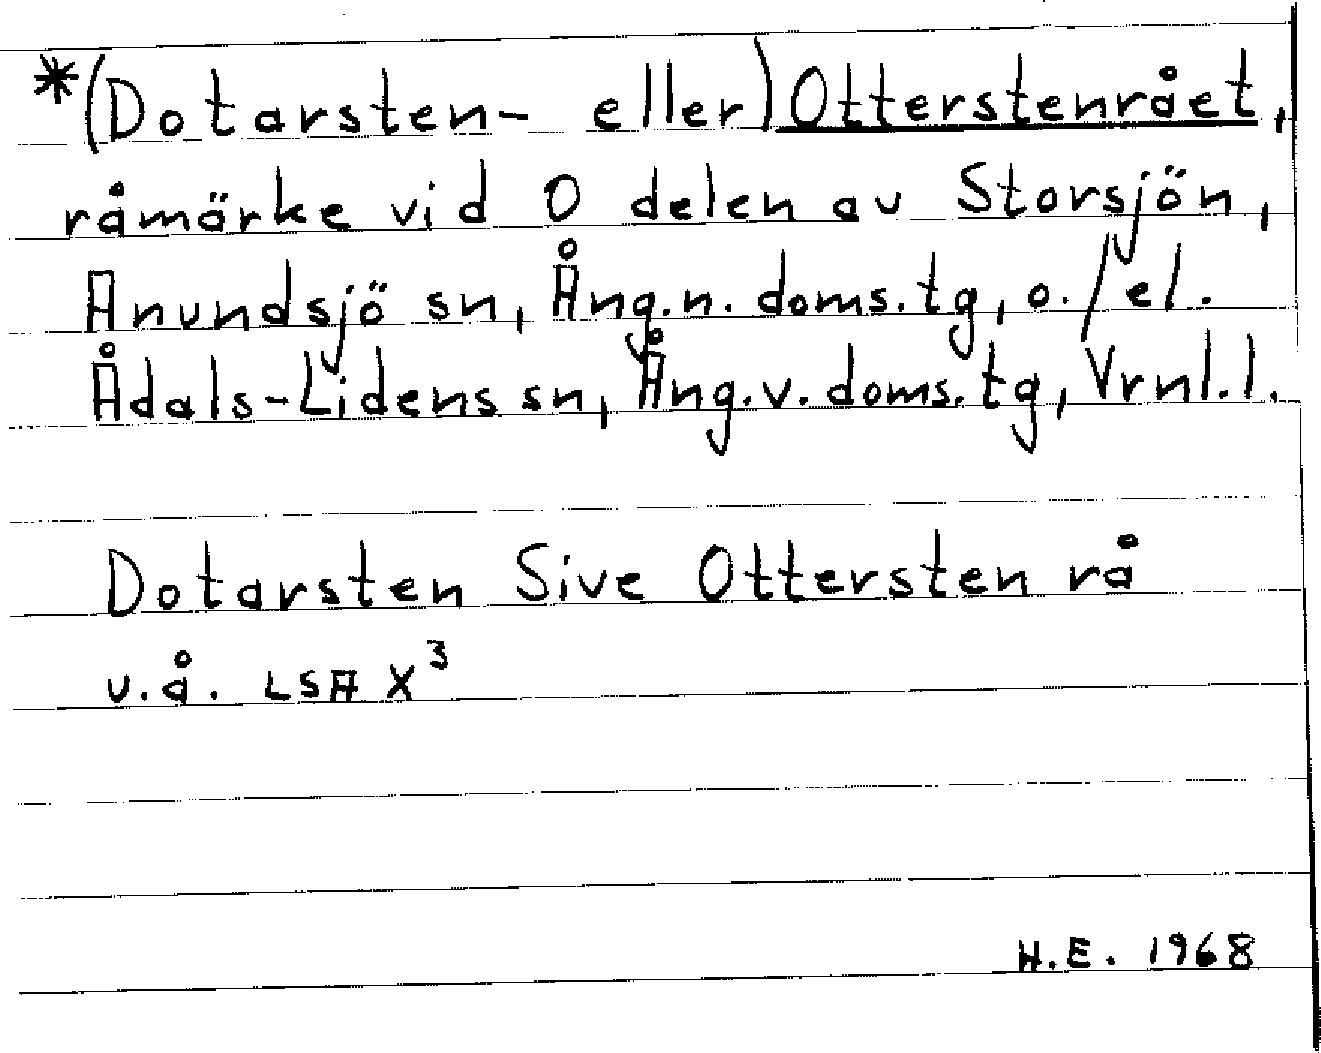 *(Dotarsten- eller) Otterstenrået,
råmärke vid O delen av Storsjön,
Anundsjö sn, Ång.n. doms.tg, o./el.
Ådals-Lidens sn, Ång.v. doms.tg, Vrnl.l.
Dotarsten Sive Ottersten rå
u.å. LSA X³
H.E. 1968